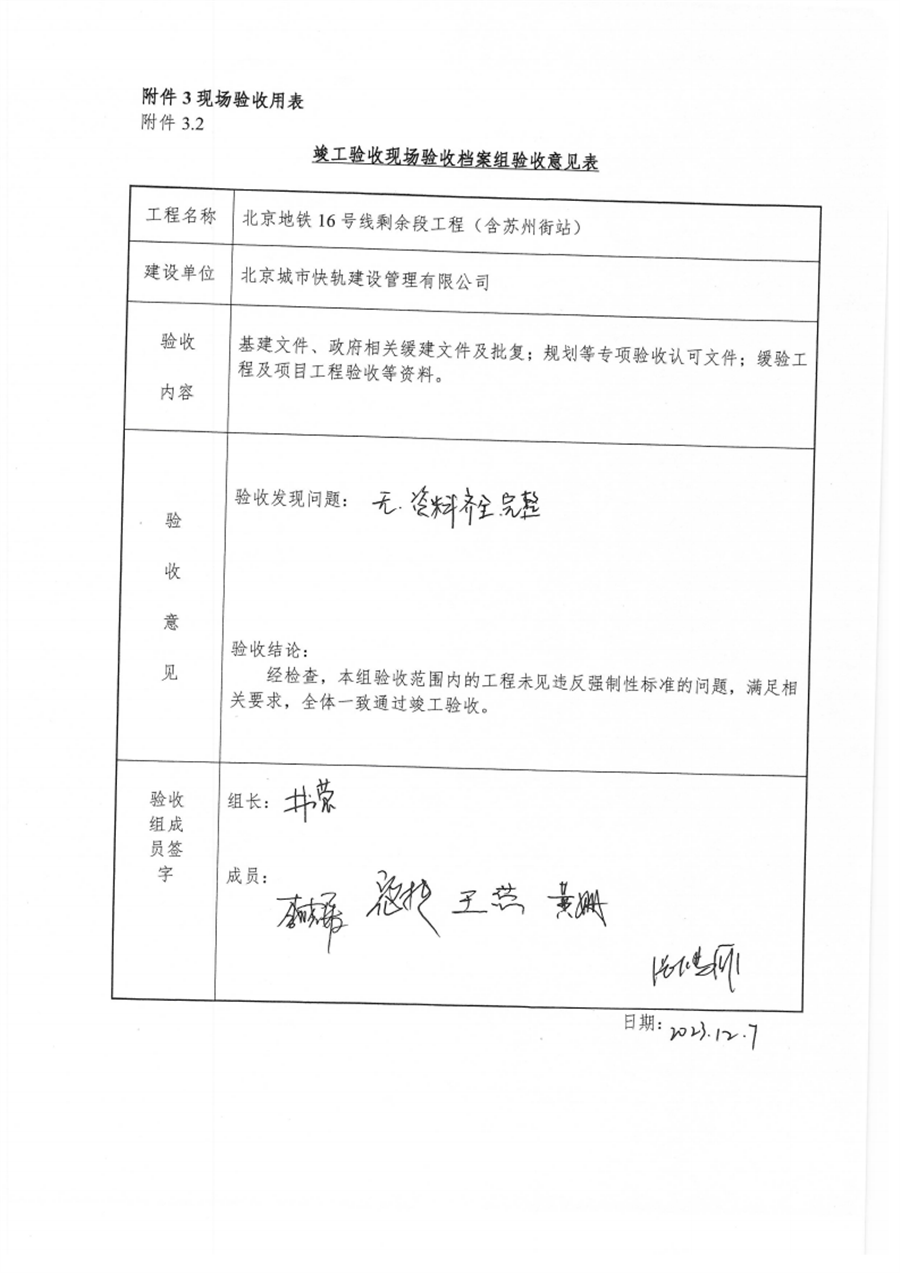 附件 3 现场验收用表
附件 3.2
竣工验收现场验收档案组验收意见表
工程名称
北京地铁 16 号线剩余段工程（含苏州街站）
建设单位
北京城市快轨建设管理有限公司
验收
内容
基建文件、政府相关缓建文件及批复；规划等专项验收认可文件；缓验工
程及项目工程验收等资料。
验
收
意
见
验收发现问题： 无. 资料齐全完整
验收结论：
经检查，本组验收范围内的工程未见违反强制性标准的问题，满足相
关要求，全体一致通过竣工验收。
验收
组成
员签
字
组长：
成员：
王燕 黄姗
日期：2023.12.7